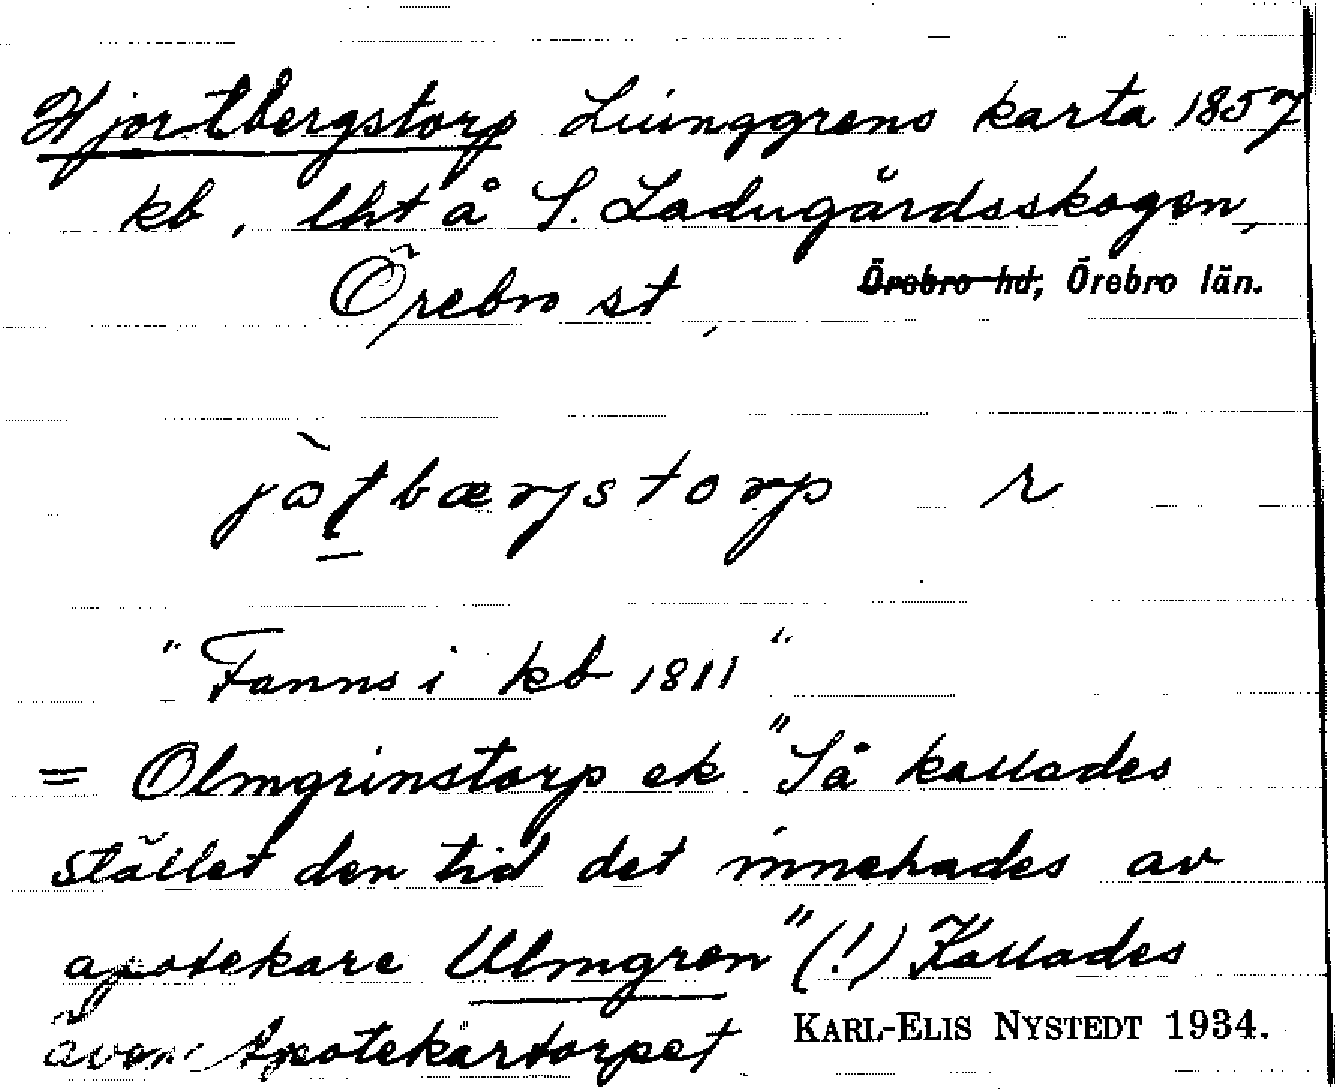 Hjortbergstorp Liunggrens karta 1857
kb, lht å S. Ladugårdsskogen,
Örebro st, Örebro hd, Örebro län.
jòtbærjstorp r
"Fanns i kb 1811"
= Olmgrinstorp ek "Så kallades
stället den tid det innehades av
apotekare Ulmgren" (!) Kallades
även Apotekartorpet KARL-ELIS NYSTEDT 1934.